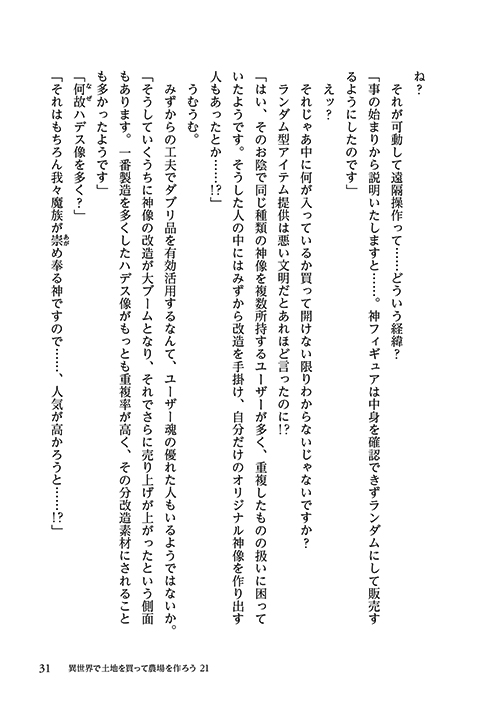 ね？
それが可動して遠隔操作って……どういう経緯？
「事の始まりから説明いたしますと……。神フィギュアは中身を確認できずランダムにして販売す
るようにしたのです」
えッ？
それじゃあ中に何が入っているか買って開けない限りわからないじゃないですか？
ランダム型アイテム提供は悪い文明だとあれほど言ったのに!?
「はい、そのお陰で同じ種類の神像を複数所持するユーザーが多く、重複したものの扱いに困って
いたようです。そうした人の中にはみずから改造を手掛け、自分だけのオリジナル神像を作り出す
人もあったとか……!?」
うむうむ。
みずからの工夫でダブリ品を有効活用するなんて、ユーザー魂の優れた人もいるようではないか。
「そうしていくうちに神像の改造が大ブームとなり、それでさらに売り上げが上がったという側面
もあります。一番製造を多くしたハデス像がもっとも重複率が高く、その分改造素材にされること
も多かったようです」
「何故なぜハデス像を多く？」
「それはもちろん我々魔族が崇あがめ奉る神ですので……、人気が高かろうと……!?」
31 異世界で土地を買って農場を作ろう 21